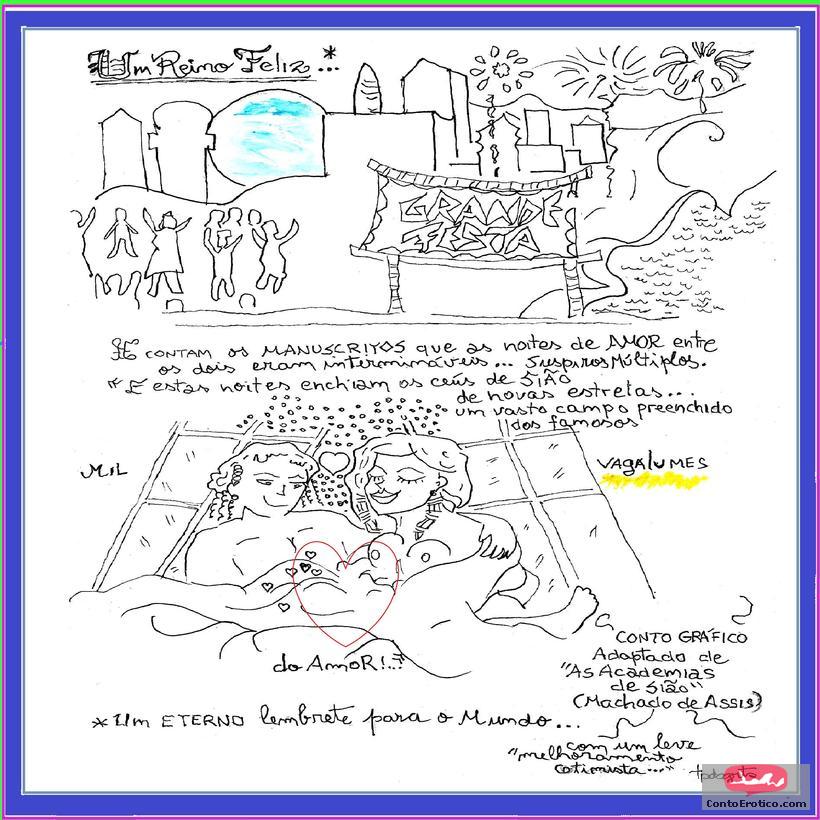 Um Reino Feliz*...
GRANDE
FESTA
E CONTAM OS MANUSCRITOS que as noites de AMOR entre
os dois eram intermináveis... Suspiros Múltiplos.
* E estas noites enchiam os céus de SIÃO
de novas estrelas...
um vasto campo preenchido
dos famosos
MIL
VAGALUMES
do AMOR!..*
CONTO GRÁFICO
Adaptado de
"As Academias
de Sião"
(Machado de Assis)
*Um ETERNO lembrete para o Mundo...
com um leve
"melhoramento
otimista..."
ContoErotico.com